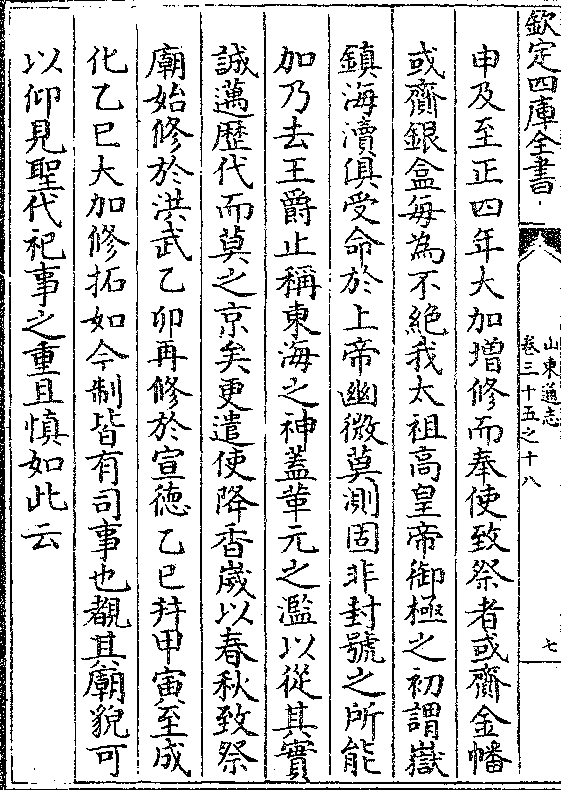 欽定四庫全書
山東通志
卷三十五之十八
七
申及至正四年大加增修而奉使致祭者或齎金幡
或齎銀盒每為不絶我太祖高皇帝御極之初謂嶽
鎮海瀆俱受命於上帝幽微莫測固非封號之所能
加乃去王爵止稱東海之神蓋革元之濫以從其實
誠邁歴代而莫之京矣更遣使降香嵗以春秋致祭
廟始修於洪武乙卯再修於宣德乙巳并甲寅至成
化乙巳大加修拓如今制皆有司事也覩其廟貌可
以仰見聖代祀事之重且慎如此云